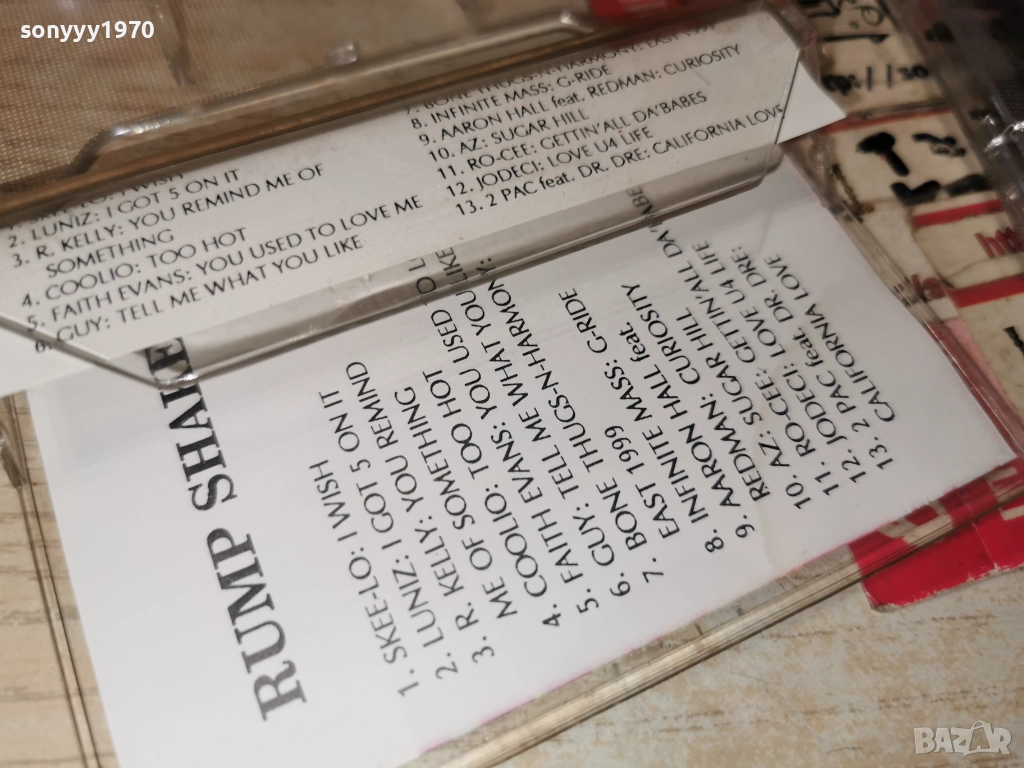 sonyyy1970
WISH
2. LUNIZ: I GOT 5 ON IT
3. R. KELLY: YOU REMIND ME OF
SOMETHING
4. COOLIO: TOO HOT
5. FAITH EVANS: YOU USED TO LOVE ME
6. GUY: TELL ME WHAT YOU LIKE
7. BONE THUGS-N-HARMONY: EAST 1999
8. INFINITE MASS: G-RIDE
9. AARON HALL feat. REDMAN: CURIOSITY
10. AZ: SUGAR HILL
11. RO-CEE: GETTIN'ALL DA'BABES
12. JODECI: LOVE U4 LIFE
13. 2 PAC feat. DR. DRE: CALIFORNIA LOVE
RUMP SHAKE
1. SKEE-LO: I WISH
2. LUNIZ: I GOT 5 ON IT
3. R. KELLY: YOU REMIND
ME OF SOMETHING
4. COOLIO: TOO HOT
5. FAITH EVANS: YOU USED TO L
6. GUY: TELL ME WHAT YOU LIKE
7. BONE THUGS-N-HARMONY:
EAST 1999
8. INFINITE MASS: G-RIDE
9. AARON HALL feat.
REDMAN: CURIOSITY
10. AZ: SUGAR HILL
11. RO-CEE: GETTIN'ALL DA'
12. JODECI: LOVE U4 LIFE
13. 2 PAC feat. DR. DRE:
CALIFORNIA LOVE
BAZAR